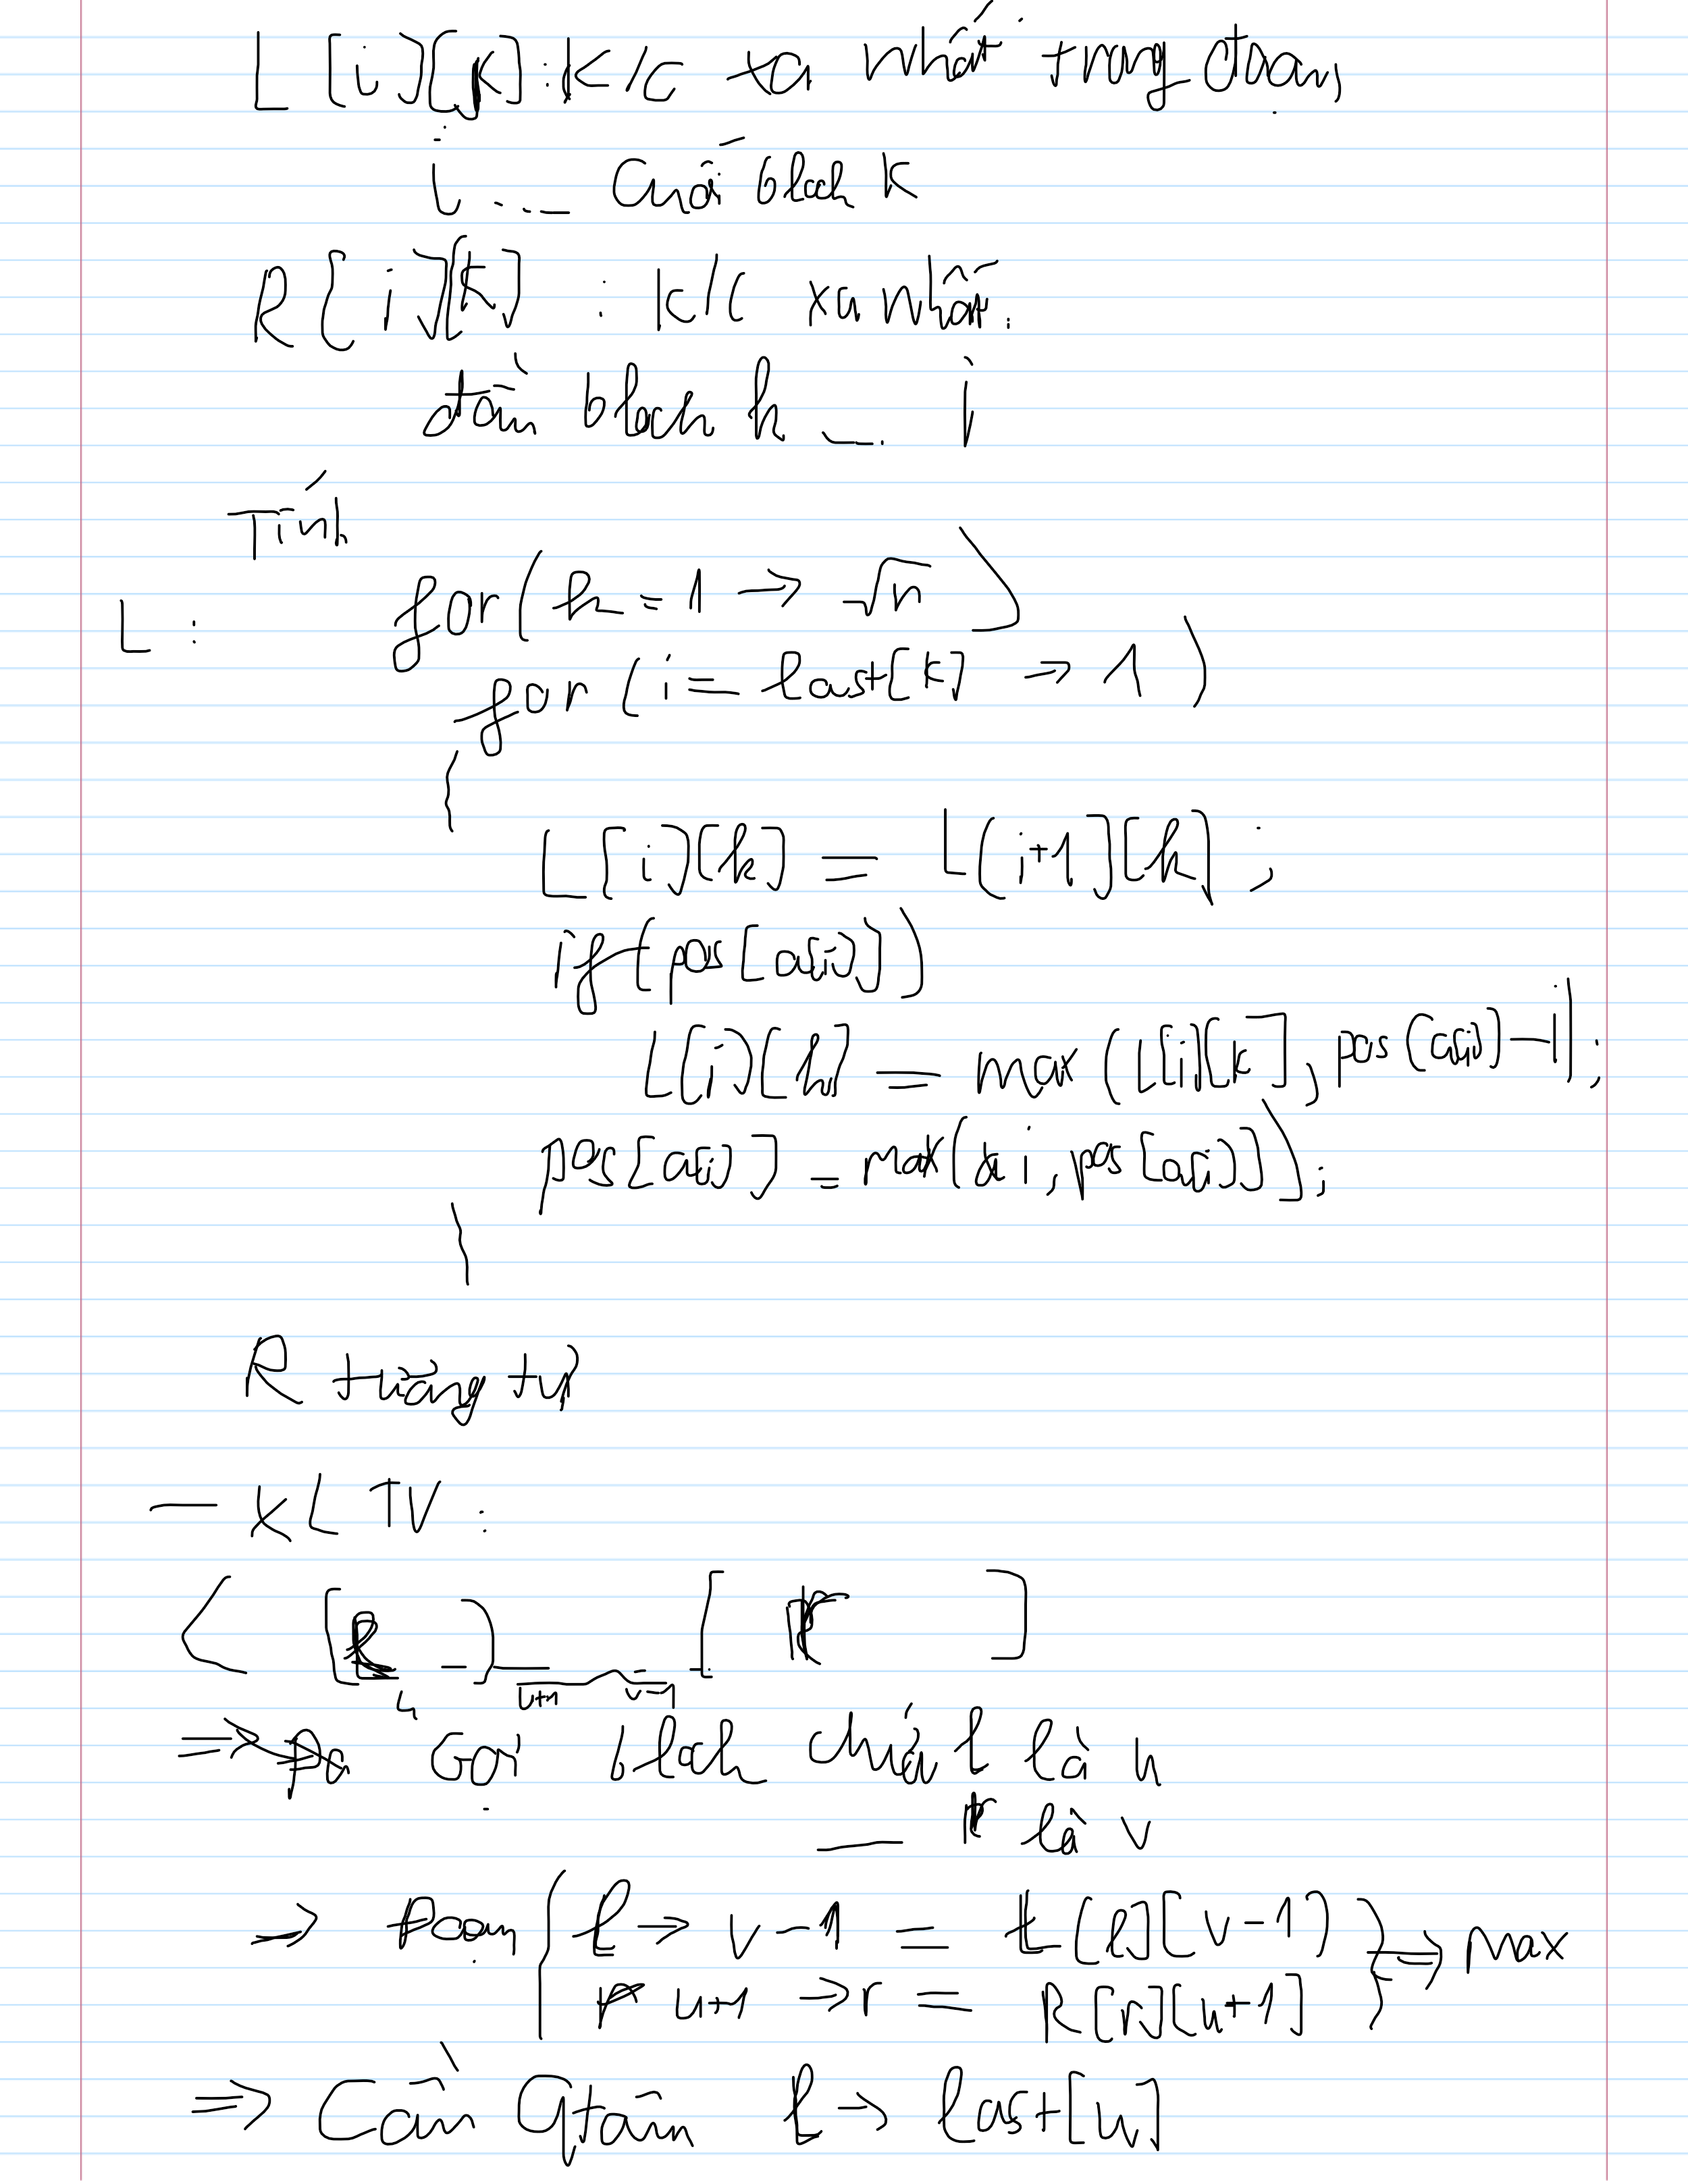 L[i][k] : k/c xa nhất trong đoạn
i ... cuối block k
R[i][k] : k/c xa nhất
đầu block k ... i
Tính
L : for(k = 1 → √n)
for(i = last[k] → 1)
{
L[i][k] = L[i+1][k];
if(pos[a[i]])
L[i][k] = max(L[i][k], pos[a[i]] - i);
pos[a[i]] = max(i, pos[a[i]]);
}
R tương tự
— XLTV :
[ l - ] [ r ]
u u+1 v-1
⇒ Gọi block chứa l là u
— r là v
→ Đoạn { l → v-1 = L[l][v-1]
u+1 → r = R[r][u+1] } ⇒ Max
⇒ Cần Qtâm l → last[u]